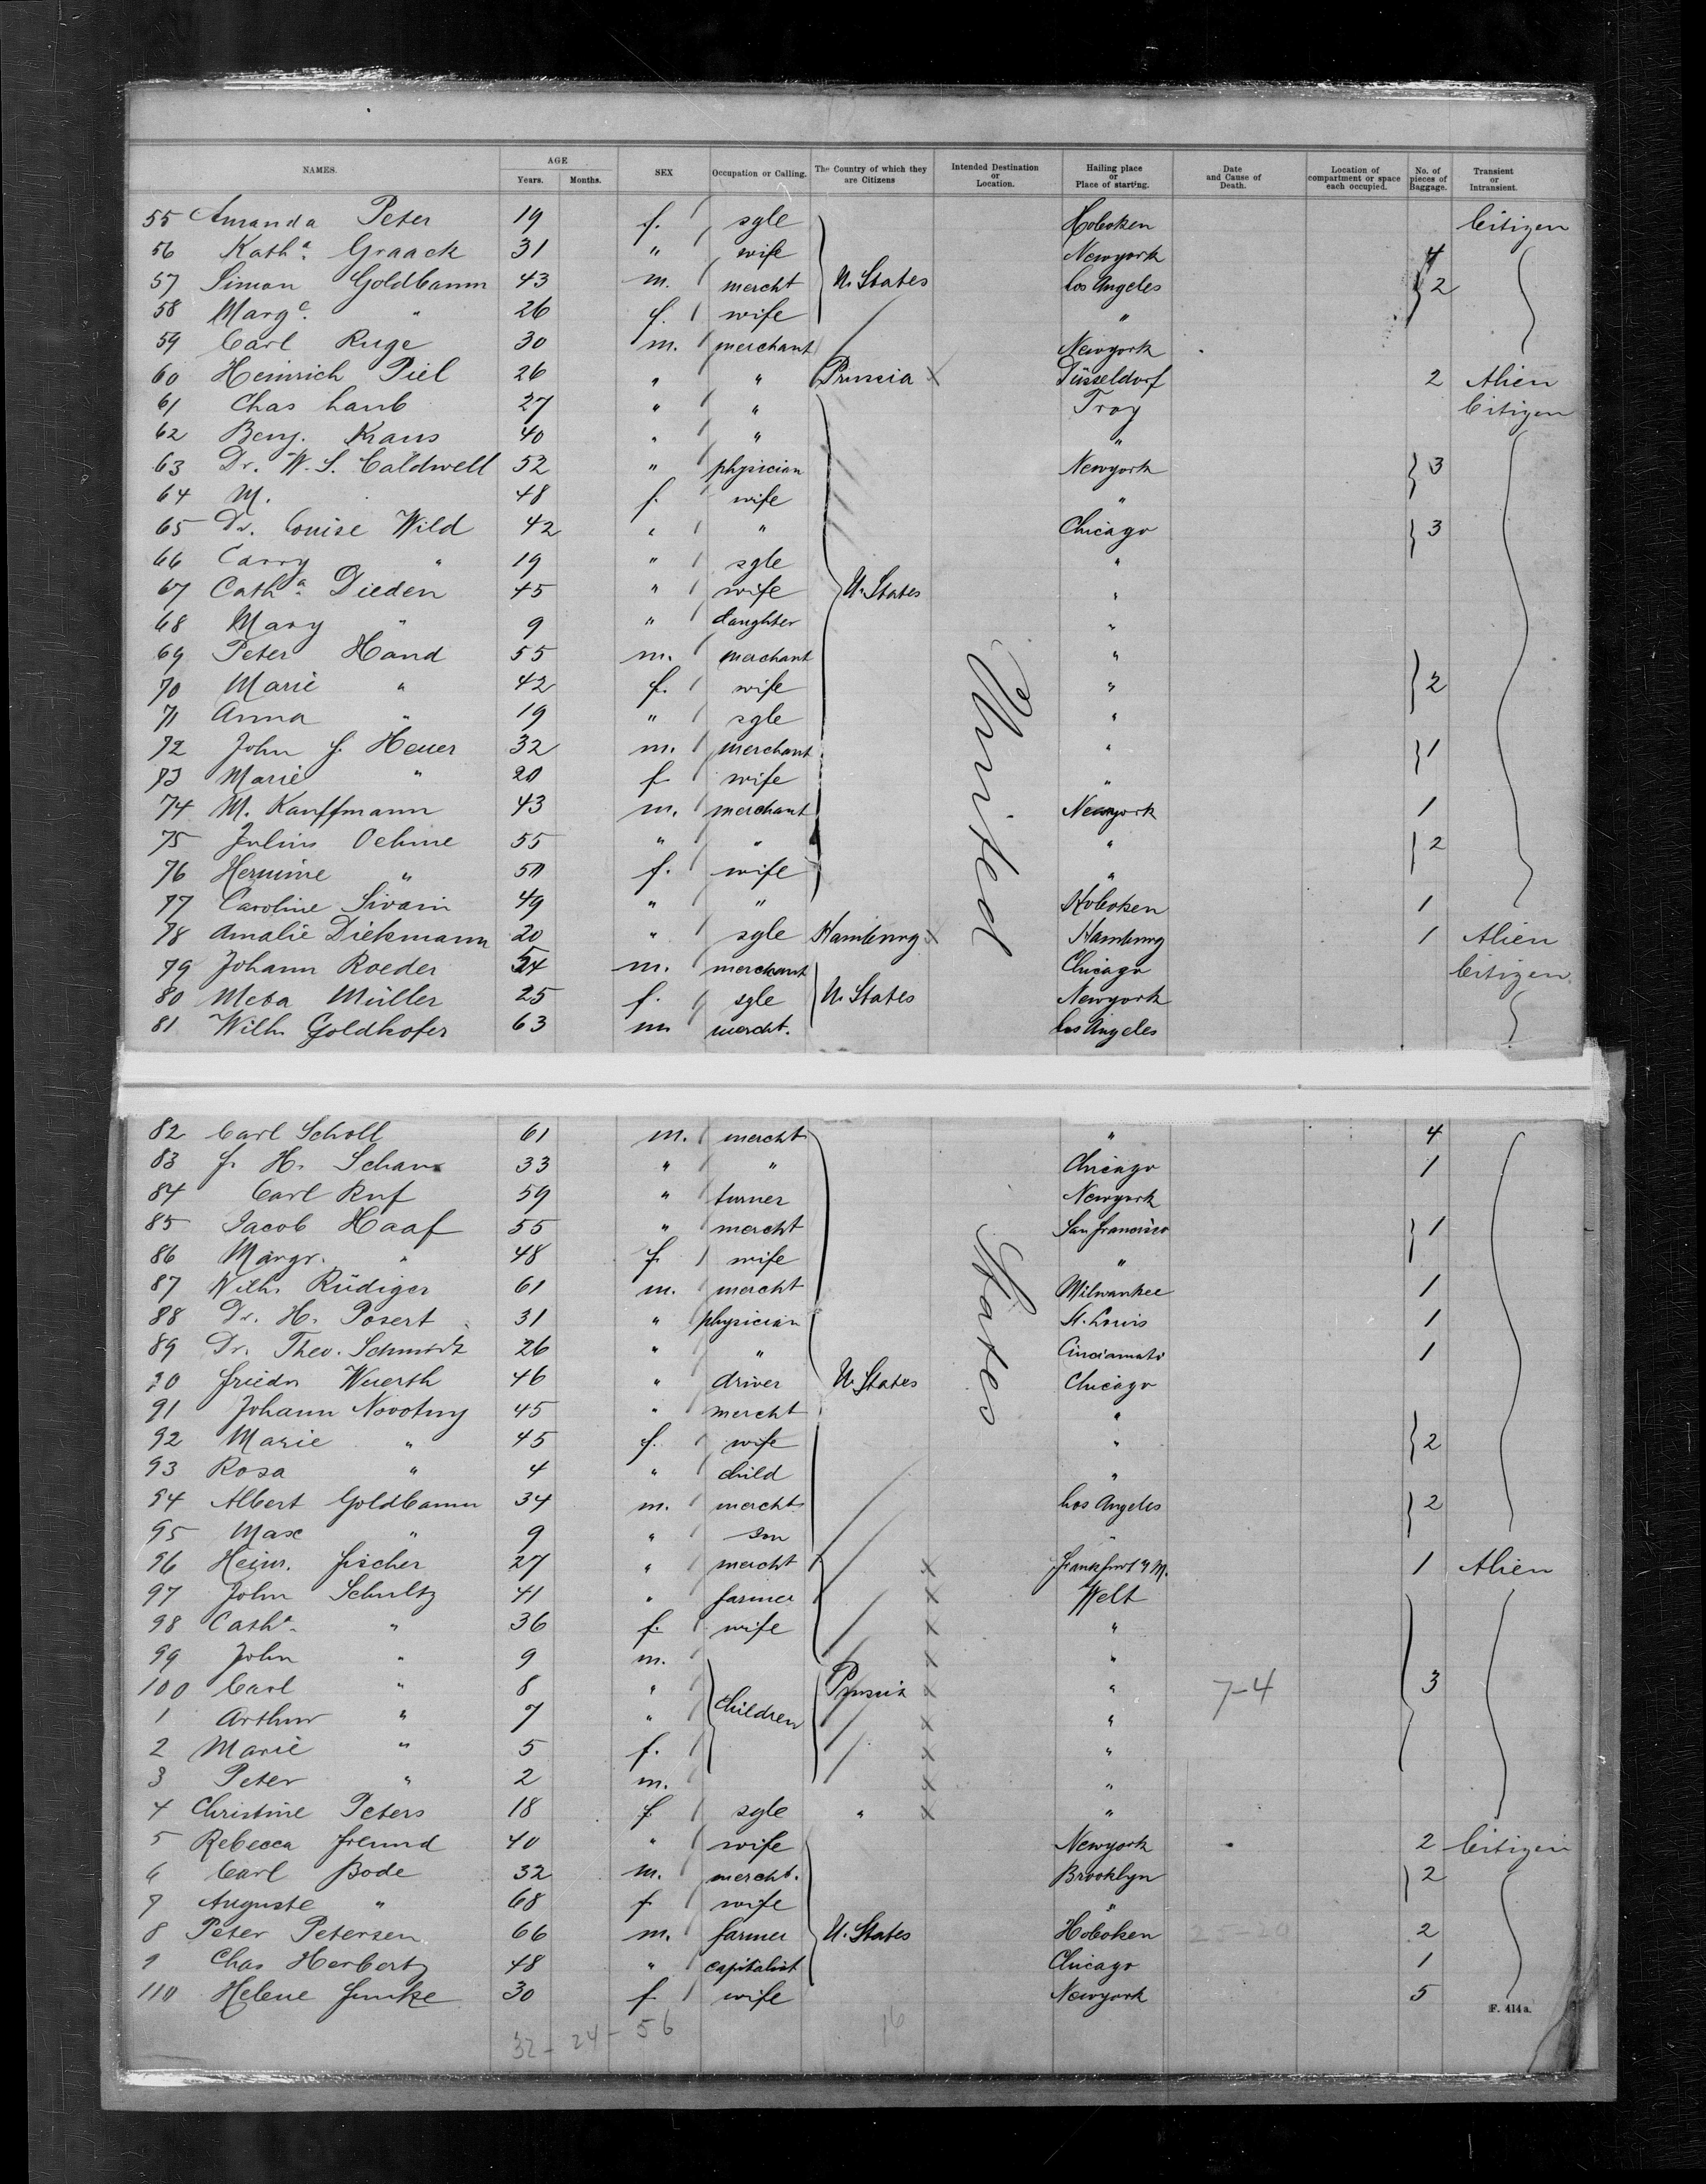 NAMES. AGE Years. Months. SEX Occupation or Calling. The Country of which they are Citizens Intended Destination or Location. Hailing place or Place of starting. Date and Cause of Death. Location of compartment or space each occupied. No. of pieces of Baggage. Transient or Intransient.
55 Amanda Peter 19 f. sgle Hoboken Citizen
56 Kath.a Graack 31 " wife Newyork 4
57 Simon Goldbaum 43 m. mercht U. States Los Angeles 2
58 Marg.e " 26 f. wife "
59 Carl Ruge 30 m. merchant Newyork
60 Heinrich Piel 26 " " Prussia x Düsseldorf 2 Alien
61 Chas Laub 27 " " Troy Citizen
62 Benj. Kraus 40 " " "
63 Dr. W. S. Caldwell 52 " physician Newyork 3
64 M. 48 f. wife "
65 Dr. Louise Wild 42 " " Chicago 3
66 Carry " 19 " sgle "
67 Cath.a Dieden 45 " wife U. States "
68 Mary " 9 " daughter "
69 Peter Hand 55 m. merchant "
70 Marie " 42 f. wife " 2
71 Anna " 19 " sgle "
72 John J. Heuer 32 m. merchant " 1
73 Marie " 20 f wife "
74 M. Kauffmann 43 m. merchant Newyork 1
75 Julius Oehme 55 " " " 2
76 Hermine " 50 f. wife "
77 Caroline Sivain 49 " " Hoboken 1
78 Amalie Diekmann 20 " sgle Hamburg x Hamburg 1 Alien
79 Johann Roeder 54 m. merchant Chicago Citizen
80 Meta Müller 25 f. sgle U. States Newyork
81 Wilh. Goldhofer 63 m mercht. Los Angeles
United States
82 Carl Scholl 61 m. mercht " 4
83 J. H. Schanx 33 " " Chicago 1
84 Carl Ruf 59 " turner Newyork
85 Jacob Haaf 55 " mercht San Francisco 1
86 Margr. " 48 f wife "
87 Wilh. Rüdiger 61 m. mercht Milwaukee 1
88 Dr. H. Posert 31 " physician St. Louis 1
89 Dr. Theo. Schmidt 26 " " Cincinnati 1
90 Friedr Wuerth 46 " driver U. States Chicago
91 Johann Novotny 45 " mercht "
92 Marie " 45 f. wife " 2
93 Rosa " 4 " child "
94 Albert Goldbaum 34 m. mercht Los Angeles 2
95 Max " 9 " son "
96 Heinr. Fischer 27 " mercht x Frankfurt a/M. 1 Alien
97 John Schultz 41 " farmer x Welt
98 Cath.a " 36 f. wife x "
99 John " 9 m. x "
100 Carl " 8 " children Prussia x " 7-4 3
1 Arthur " 7 " x "
2 Marie " 5 f. x "
3 Peter " 2 m. x "
4 Christine Peters 18 f sgle " x "
5 Rebecca Freund 40 " wife Newyork 2 Citizen
6 Carl Bode 32 m. mercht. Brooklyn 2
7 Auguste " 68 f wife "
8 Peter Petersen 66 m. farmer U. States Hoboken 25-20 2
9 Chas Herbertz 48 " capitalist Chicago 1
110 Helene Funke 30 f wife Newyork 5
F. 414 a.
32 - 24 - 56 16